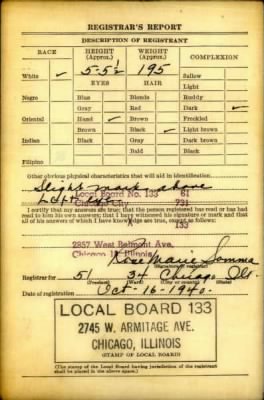 REGISTRAR'S REPORT
DESCRIPTION OF REGISTRANT
RACE HEIGHT (Approx.) WEIGHT (Approx.) COMPLEXION
5-5½ 195
White ✓ EYES HAIR Sallow
Light
Negro Blue Blonde Ruddy
Gray Red Dark ✓
Oriental Hazel ✓ Brown Freckled
Brown Black ✓ Light brown
Indian Black Gray Dark brown
Bald Black
Filipino
Other obvious physical characteristics that will aid in identification
Slight mark above
Left eye
Local Board No. 133 61
731
133
I certify that my answers are true; that the person registered has read or has had
read to him his own answers; that I have witnessed his signature or mark and that
all of his answers of which I have knowledge are true, except as follows:
2857 West Belmont Ave.
Chicago Illinois
Rose Marie Somma
(Signature of registrar)
Registrar for 51 34 Chicago Ill.
(Precinct) (Ward) (City or county) (State)
Date of registration Oct-16-1940.
LOCAL BOARD 133
2745 W. ARMITAGE AVE.
CHICAGO, ILLINOIS
(STAMP OF LOCAL BOARD)
(The stamp of the Local Board having jurisdiction of the registrant
shall be placed in the above space.)